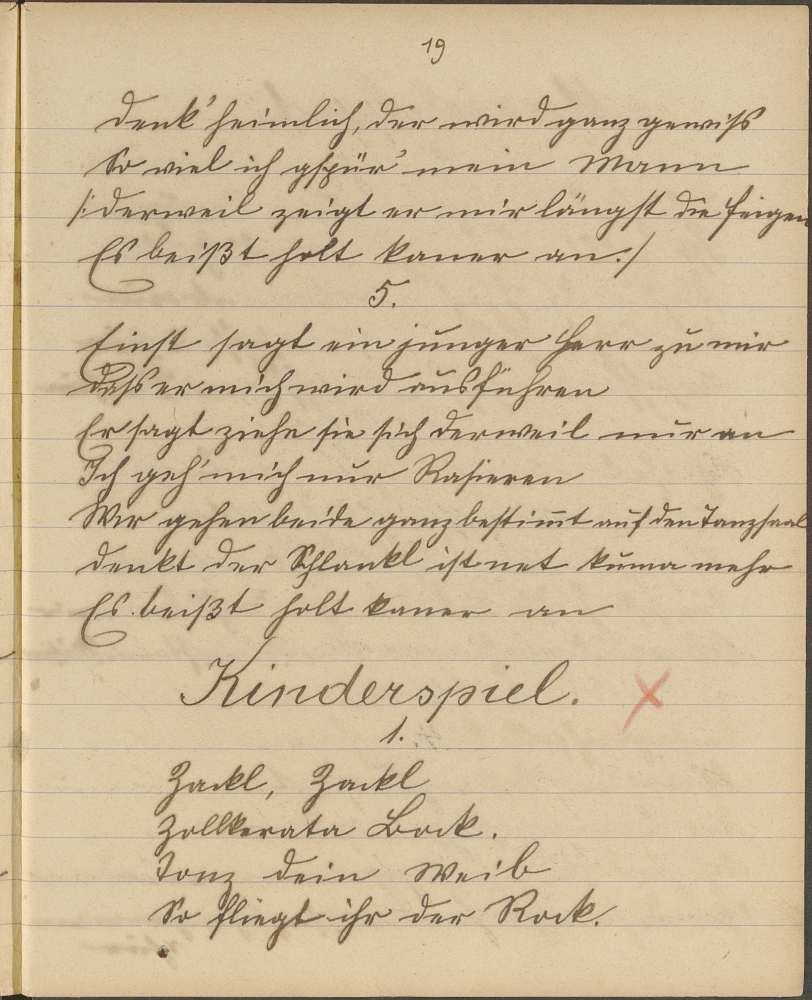 19
denk' heimlich, der wird ganz gewiss
So viel ich gspür' mein Mann
/: derweil zeigt er mir längst die Feigen
Es beißt holt kaner an :/
5.
Einst sagt ein junger Herr zu mir
dass er mich wird ausführen
Er sagt ziehe sie sich derweil nur an
Ich geh' mich nur Rasieren
Wir gehen beide ganz bestimt auf den Tanzsaal
denkt der Schlankl ist net kuma mehr
Es beißt holt kaner an
Kinderspiel.
1.
Zackl, Zackl
Zollkerata Bock.
Tonz dein Weib
So fliegt ihr der Rock.